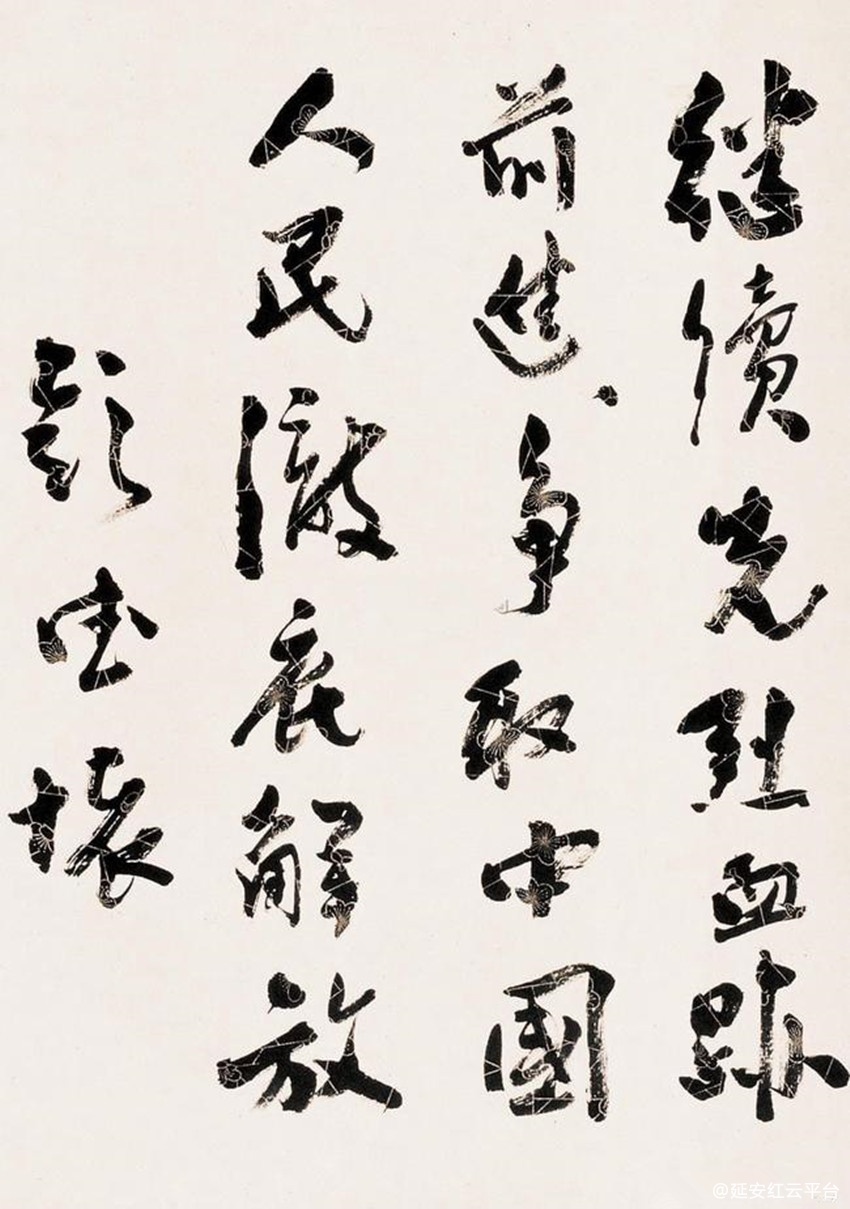 继續先烈血跡
前進、争取中國
人民澈底解放
彭德懷
@延安红云平台